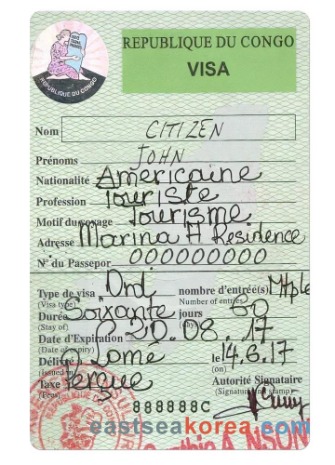 REPUBLIQUE DU CONGO
REPUBLIQUE DU CONGO
VISA
Nom CITIZEN
Prénoms JOHN
Nationalité Américaine
Profession Touriste
Motif du voyage Tourisme
Adresse Marina H Residence
N° du Passepor 000000000
Type de visa Ord nombre d'entrée(s) Mtple
(Visa type) Number of entries
Durée Soixante jours 60
(Stay of) days
Date d'Expiration 20.08 17
(Date of expiry)
Délivré à Lomé le 14.6.17
(issued in) (on)
Taxe Perçue Autorité Signataire
(Fees) (Signature and stamp)
888888C
eastseakorea.com